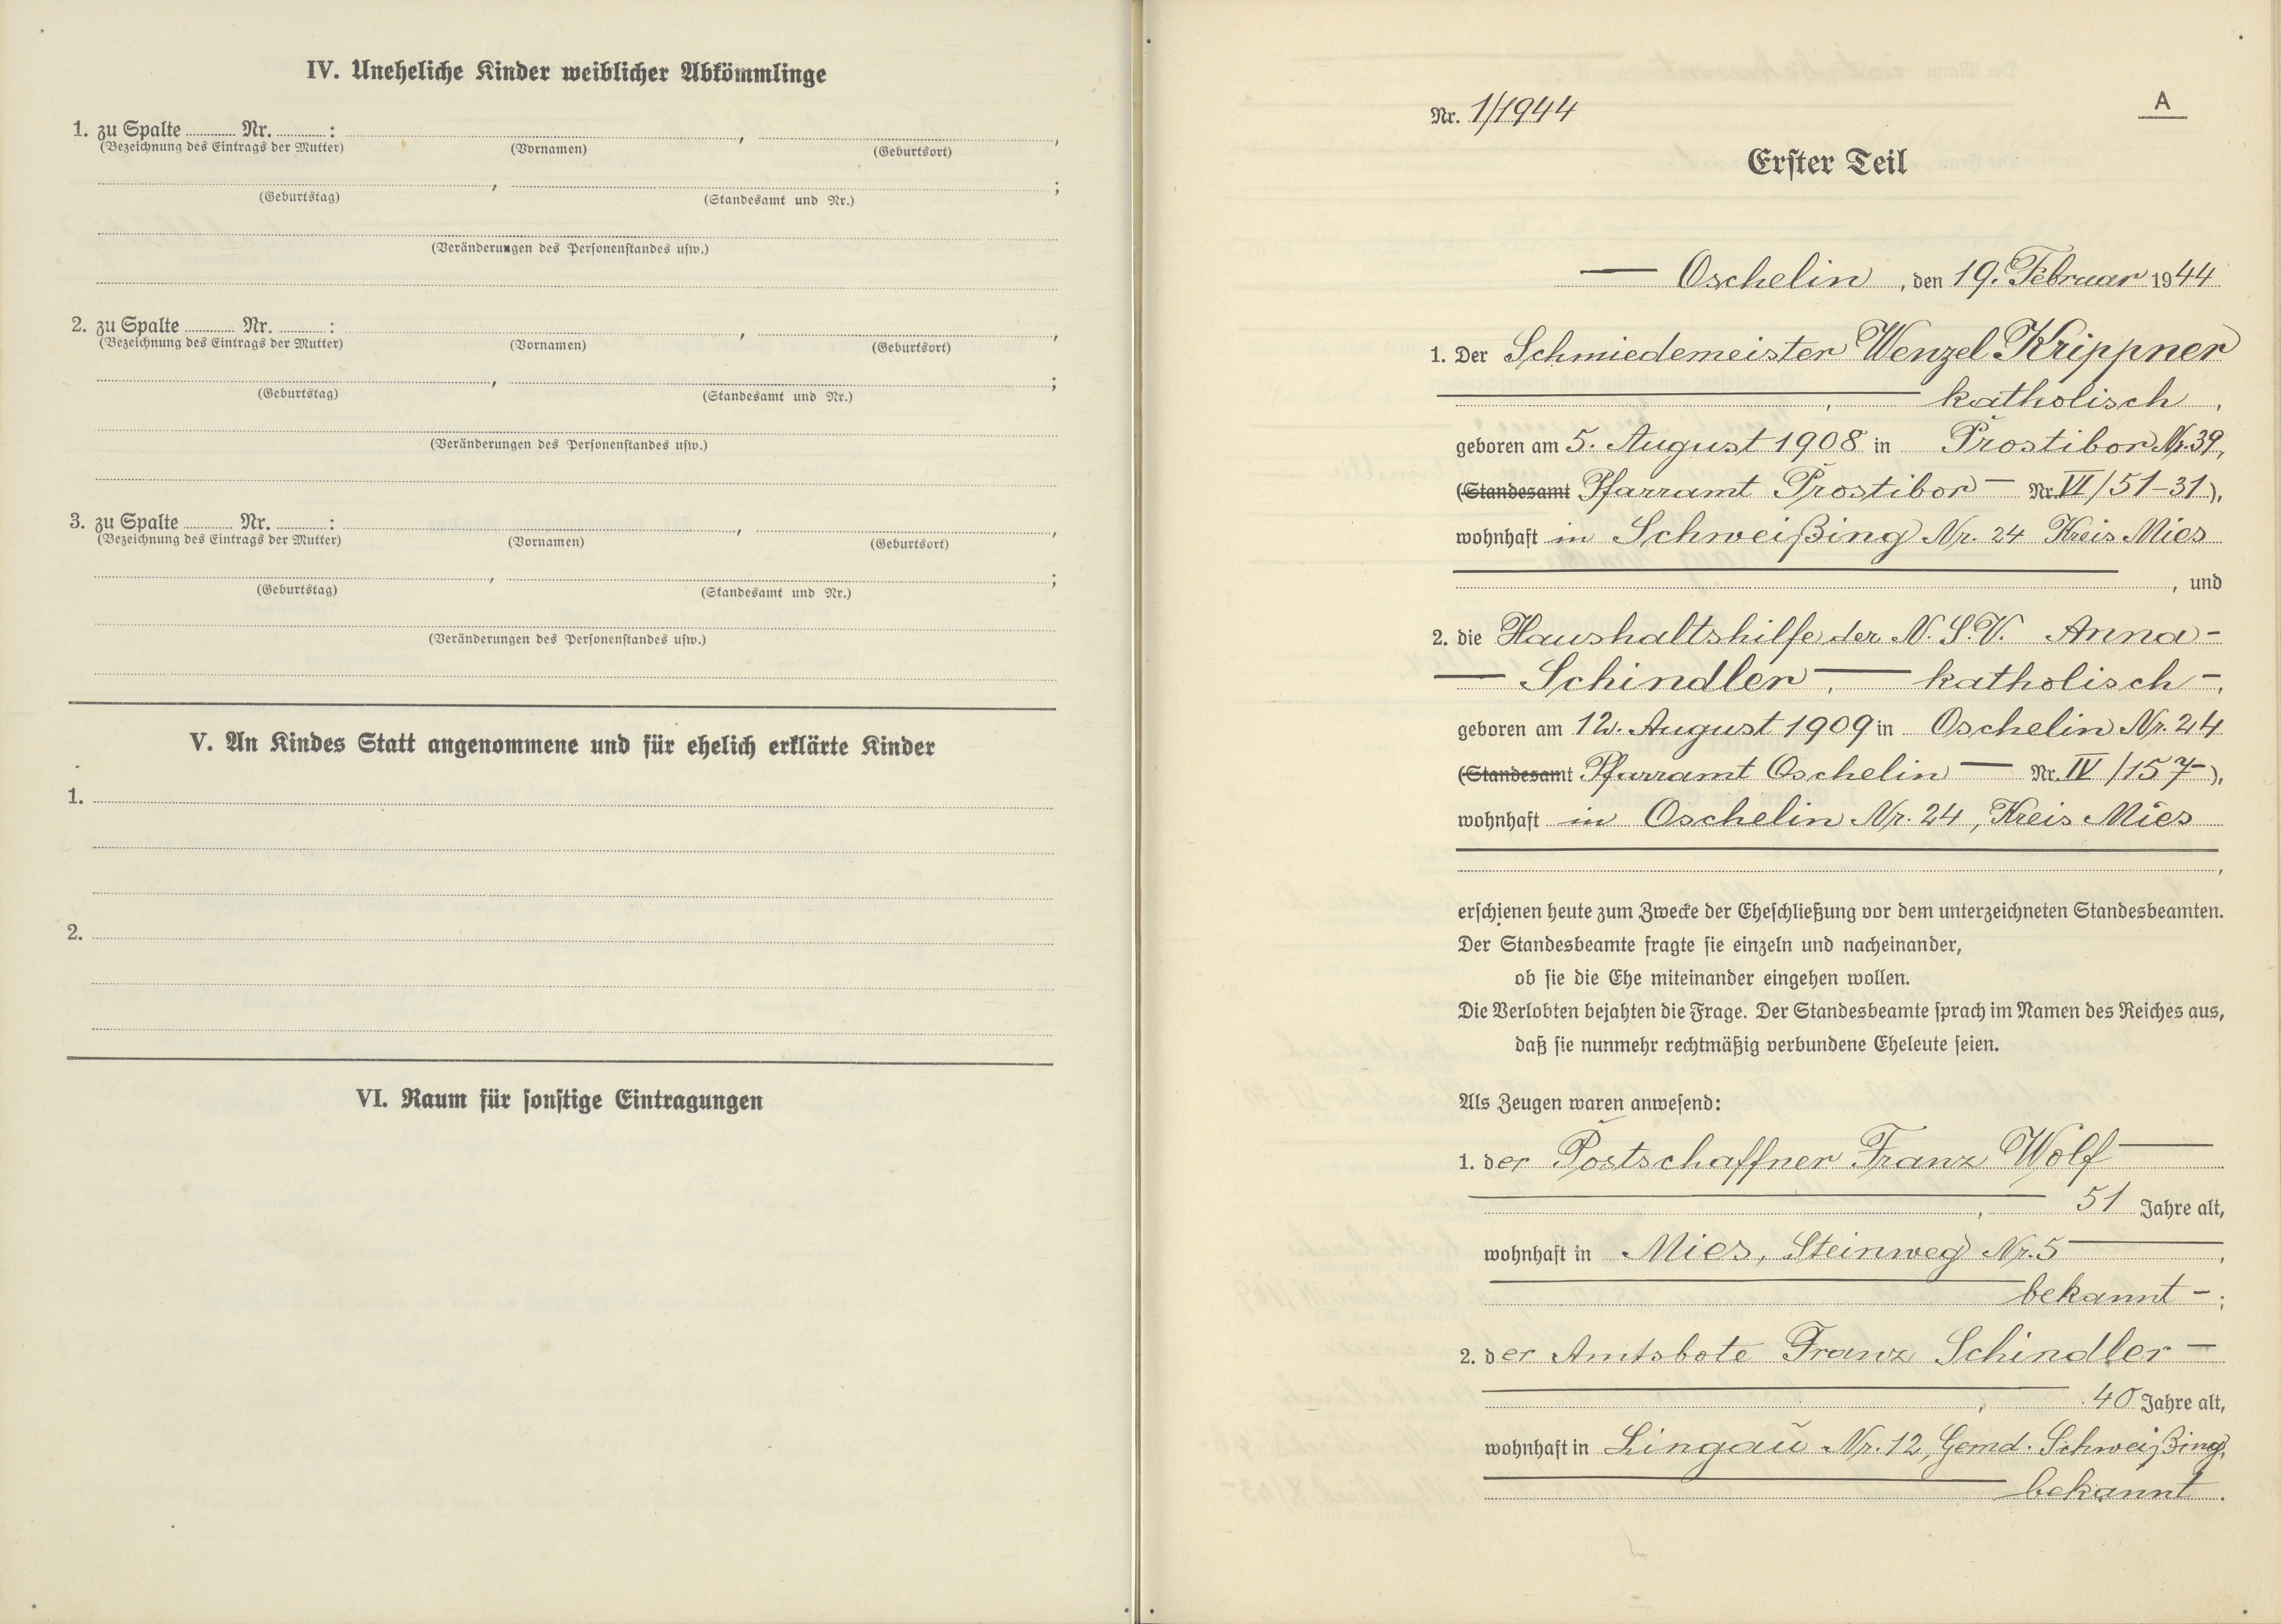 IV. Uneheliche Kinder weiblicher Abkömmlinge
1. zu Spalte ........ Nr. ........ :
(Bezeichnung des Eintrags der Mutter) (Vornamen) (Geburtsort)
(Geburtstag) (Standesamt und Nr.)
(Veränderungen des Personenstandes usw.)
2. zu Spalte ........ Nr. ........ :
(Bezeichnung des Eintrags der Mutter) (Vornamen) (Geburtsort)
(Geburtstag) (Standesamt und Nr.)
(Veränderungen des Personenstandes usw.)
3. zu Spalte ........ Nr. ........ :
(Bezeichnung des Eintrags der Mutter) (Vornamen) (Geburtsort)
(Geburtstag) (Standesamt und Nr.)
(Veränderungen des Personenstandes usw.)
V. An Kindes Statt angenommene und für ehelich erklärte Kinder
1.
2.
VI. Raum für sonstige Eintragungen
A
Nr. 1/1944
Erster Teil
— Oschelin, den 19. Februar 1944
1. Der Schmiedemeister Wenzel Krippner
—, katholisch,
geboren am 5. August 1908 in Prostibor Nr. 39,
(Standesamt Pfarramt Prostibor — Nr. VI/51-31),
wohnhaft in Schweißing Nr. 24 Kreis Mies
—, und
2. die Haushaltshilfe der N.S.V. Anna -
— Schindler, — katholisch -,
geboren am 12. August 1909 in Oschelin Nr. 24
(Standesamt Pfarramt Oschelin — Nr. IV/157-),
wohnhaft in Oschelin Nr. 24, Kreis Mies
—,
erschienen heute zum Zwecke der Eheschließung vor dem unterzeichneten Standesbeamten.
Der Standesbeamte fragte sie einzeln und nacheinander,
ob sie die Ehe miteinander eingehen wollen.
Die Verlobten bejahten die Frage. Der Standesbeamte sprach im Namen des Reiches aus,
daß sie nunmehr rechtmäßig verbundene Eheleute seien.
Als Zeugen waren anwesend:
1. der Postschaffner Franz Wolf —
—, 51 Jahre alt,
wohnhaft in Mies, Steinweg Nr. 5 —,
— bekannt -;
2. der Amtsbote Franz Schindler —
—, 40 Jahre alt,
wohnhaft in Lingau Nr. 12, Gemd. Schweißing,
— bekannt.